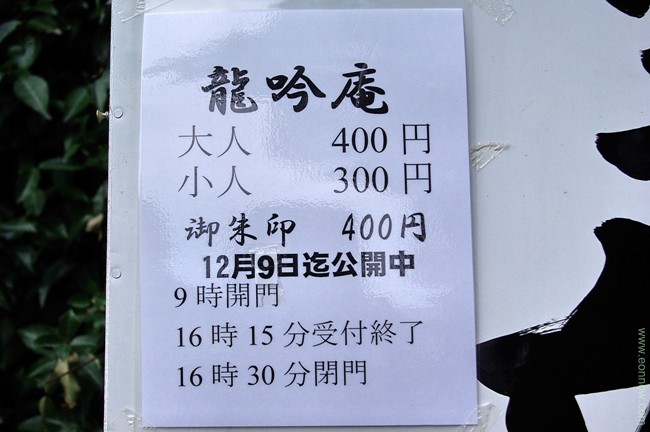 龍吟庵
大人 400円
小人 300円
御朱印 400円
12月9日迄公開中
9時開門
16時15分受付終了
16時30分閉門